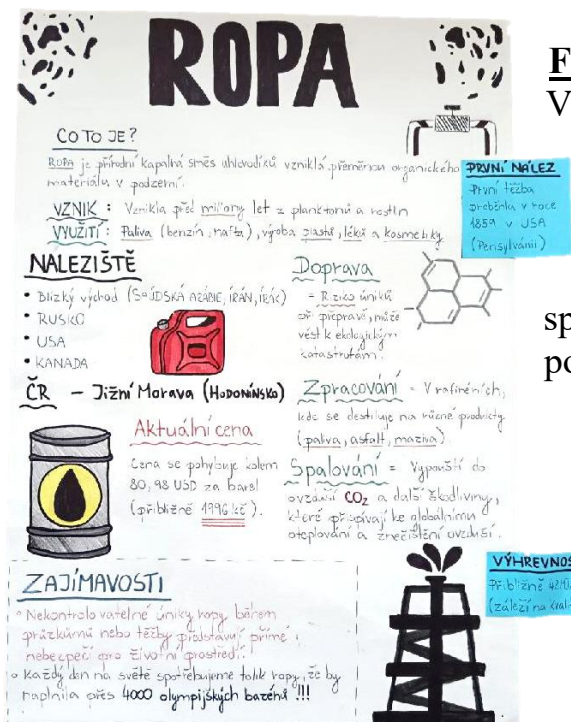 ROPA
CO TO JE?
ROPA je přírodní kapalná směs uhlovodíků vzniklá přeměnou organického
materiálu v podzemí.
VZNIK: Vznikla před miliony let z planktonů a rostlin
VYUŽITÍ: Paliva (benzín, nafta), výroba plastů, léků a kosmetiky
PRVNÍ NÁLEZ
První těžba
proběhla v roce
1859 v USA
(Pensylvánii)
NALEZIŠTĚ
• Blízký východ (SAÚDSKÁ ARÁBIE, ÍRÁN, IRÁK)
• RUSKO
• USA
• KANADA
ČR – Jižní Morava (HODONÍNSKO)
Doprava
= Riziko úniků
při přepravě, může
vést k ekologickým
katastrofám.
Zpracování = V rafinériích,
kde se destiluje na různé produkty
(paliva, asfalt, maziva).
Aktuální cena
Cena se pohybuje kolem
80,98 USD za barel
(přibližně 1996 kč).
Spalování = Vypouští do
ovzduší CO₂ a další škodliviny,
které přispívají ke globálnímu
oteplování a znečištění ovzduší.
ZAJÍMAVOSTI
° Nekontrolovatelné úniky ropy během
průzkumů nebo těžby představují přímé
nebezpečí pro životní prostředí.
° Každý den na světě spotřebujeme tolik ropy, že by
naplnila přes 4000 olympijských bazénů !!!
VÝHŘEVNOS
Přibližně
(záleží na kval
F
V
sp
po